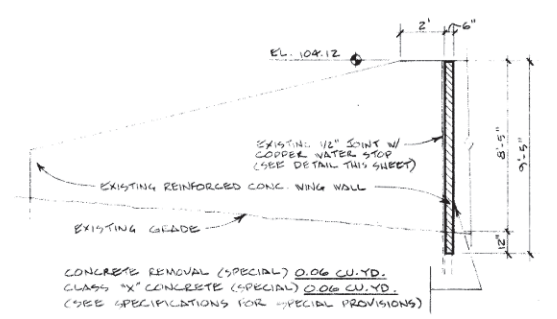 2' 6"
EL. 104.12
EXISTING 1/2" JOINT W/
COPPER WATER STOP
(SEE DETAIL THIS SHEET)
8'-5"
9'-5"
EXISTING REINFORCED CONC. WING WALL
EXISTING GRADE
12"
CONCRETE REMOVAL (SPECIAL) 0.06 CU.YD.
CLASS "X" CONCRETE (SPECIAL) 0.06 CU.YD.
(SEE SPECIFICATIONS FOR SPECIAL PROVISIONS)